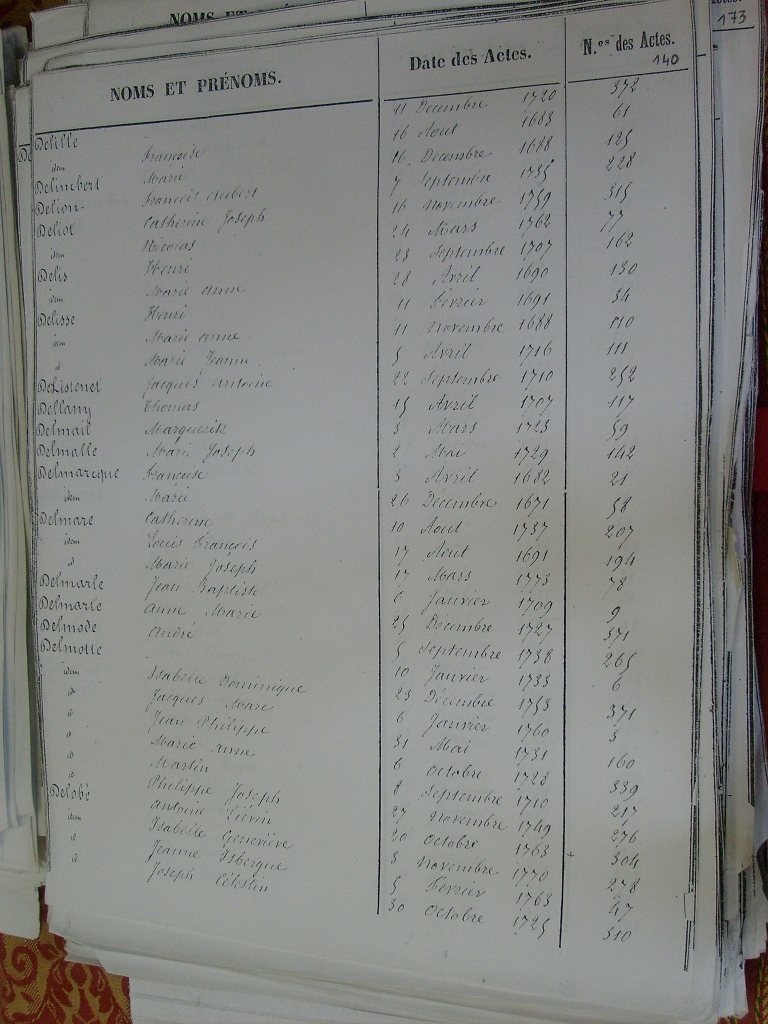 NOMS ET PRÉNOMS. Date des Actes. N.os des Actes.
173
140
Delille 11 Decembre 1720 372
idem Francoise 16 Aout 1683 61
Delimbert Marie 16 Decembre 1688 125
Delion Francois Aubert 7 Septembre 1735 228
Deliot Catherine Joseph 16 Novembre 1759 315
idem Nicolas 24 Mars 1762 77
Delis Henri 23 Septembre 1707 162
idem Marie anne 28 Avril 1690 130
Delisse Henri 11 Février 1691 34
idem Marie anne 11 Novembre 1688 110
id Marie Jeanne 5 Avril 1716 111
DeListenet Jacques Antoine 22 Septembre 1710 252
Dellany Thomas 15 Avril 1707 117
Delmail Marguerite 3 Mars 1723 59
Delmalle Marie Joseph 2 Mai 1729 142
Delmarcque Francoise 3 Avril 1682 21
idem Marie 26 Decembre 1671 58
Delmare Catherine 10 Aout 1737 207
idem Louis Francois 17 Aout 1691 194
id Marie Joseph 17 Mars 1773 78
Delmarle Jean Baptiste 6 Janvier 1709 9
Delmarle Anne Marie 25 Decembre 1727 371
Delmode André 5 Septembre 1738 265
Delmotte 10 Janvier 1733 6
idem Isabelle Dominique 23 Décembre 1753 371
id Jacques Marc 6 Janvier 1760 3
id Jean Philippe 31 Mai 1731 160
id Marie Anne 6 Octobre 1728 339
id Martin 8 Septembre 1710 217
id Philippe Joseph 27 Novembre 1749 276
Delobé Antoine Liévin 20 Octobre 1763 304
idem Isabelle Geneviève 3 Novembre 1770 278
id Jeanne Isbergue 5 Février 1763 47
id Joseph Célestin 30 Octobre 1725 310